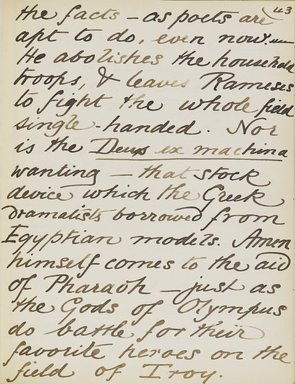 43
the facts - as poets are
apt to do, even now. —
He abolishes the household
troops, & leaves Rameses
to fight the whole field
single-handed. Nor
is the Deus ex machina
wanting — that stock
device which the Greek
Dramatists borrowed from
Egyptian models. Amen
himself comes to the aid
of Pharaoh — just as
the Gods of Olympus
do battle for their
favorite heroes on the
field of Troy.